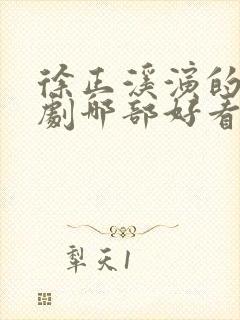 徐正溪演的
劇哪部好看
犁天1